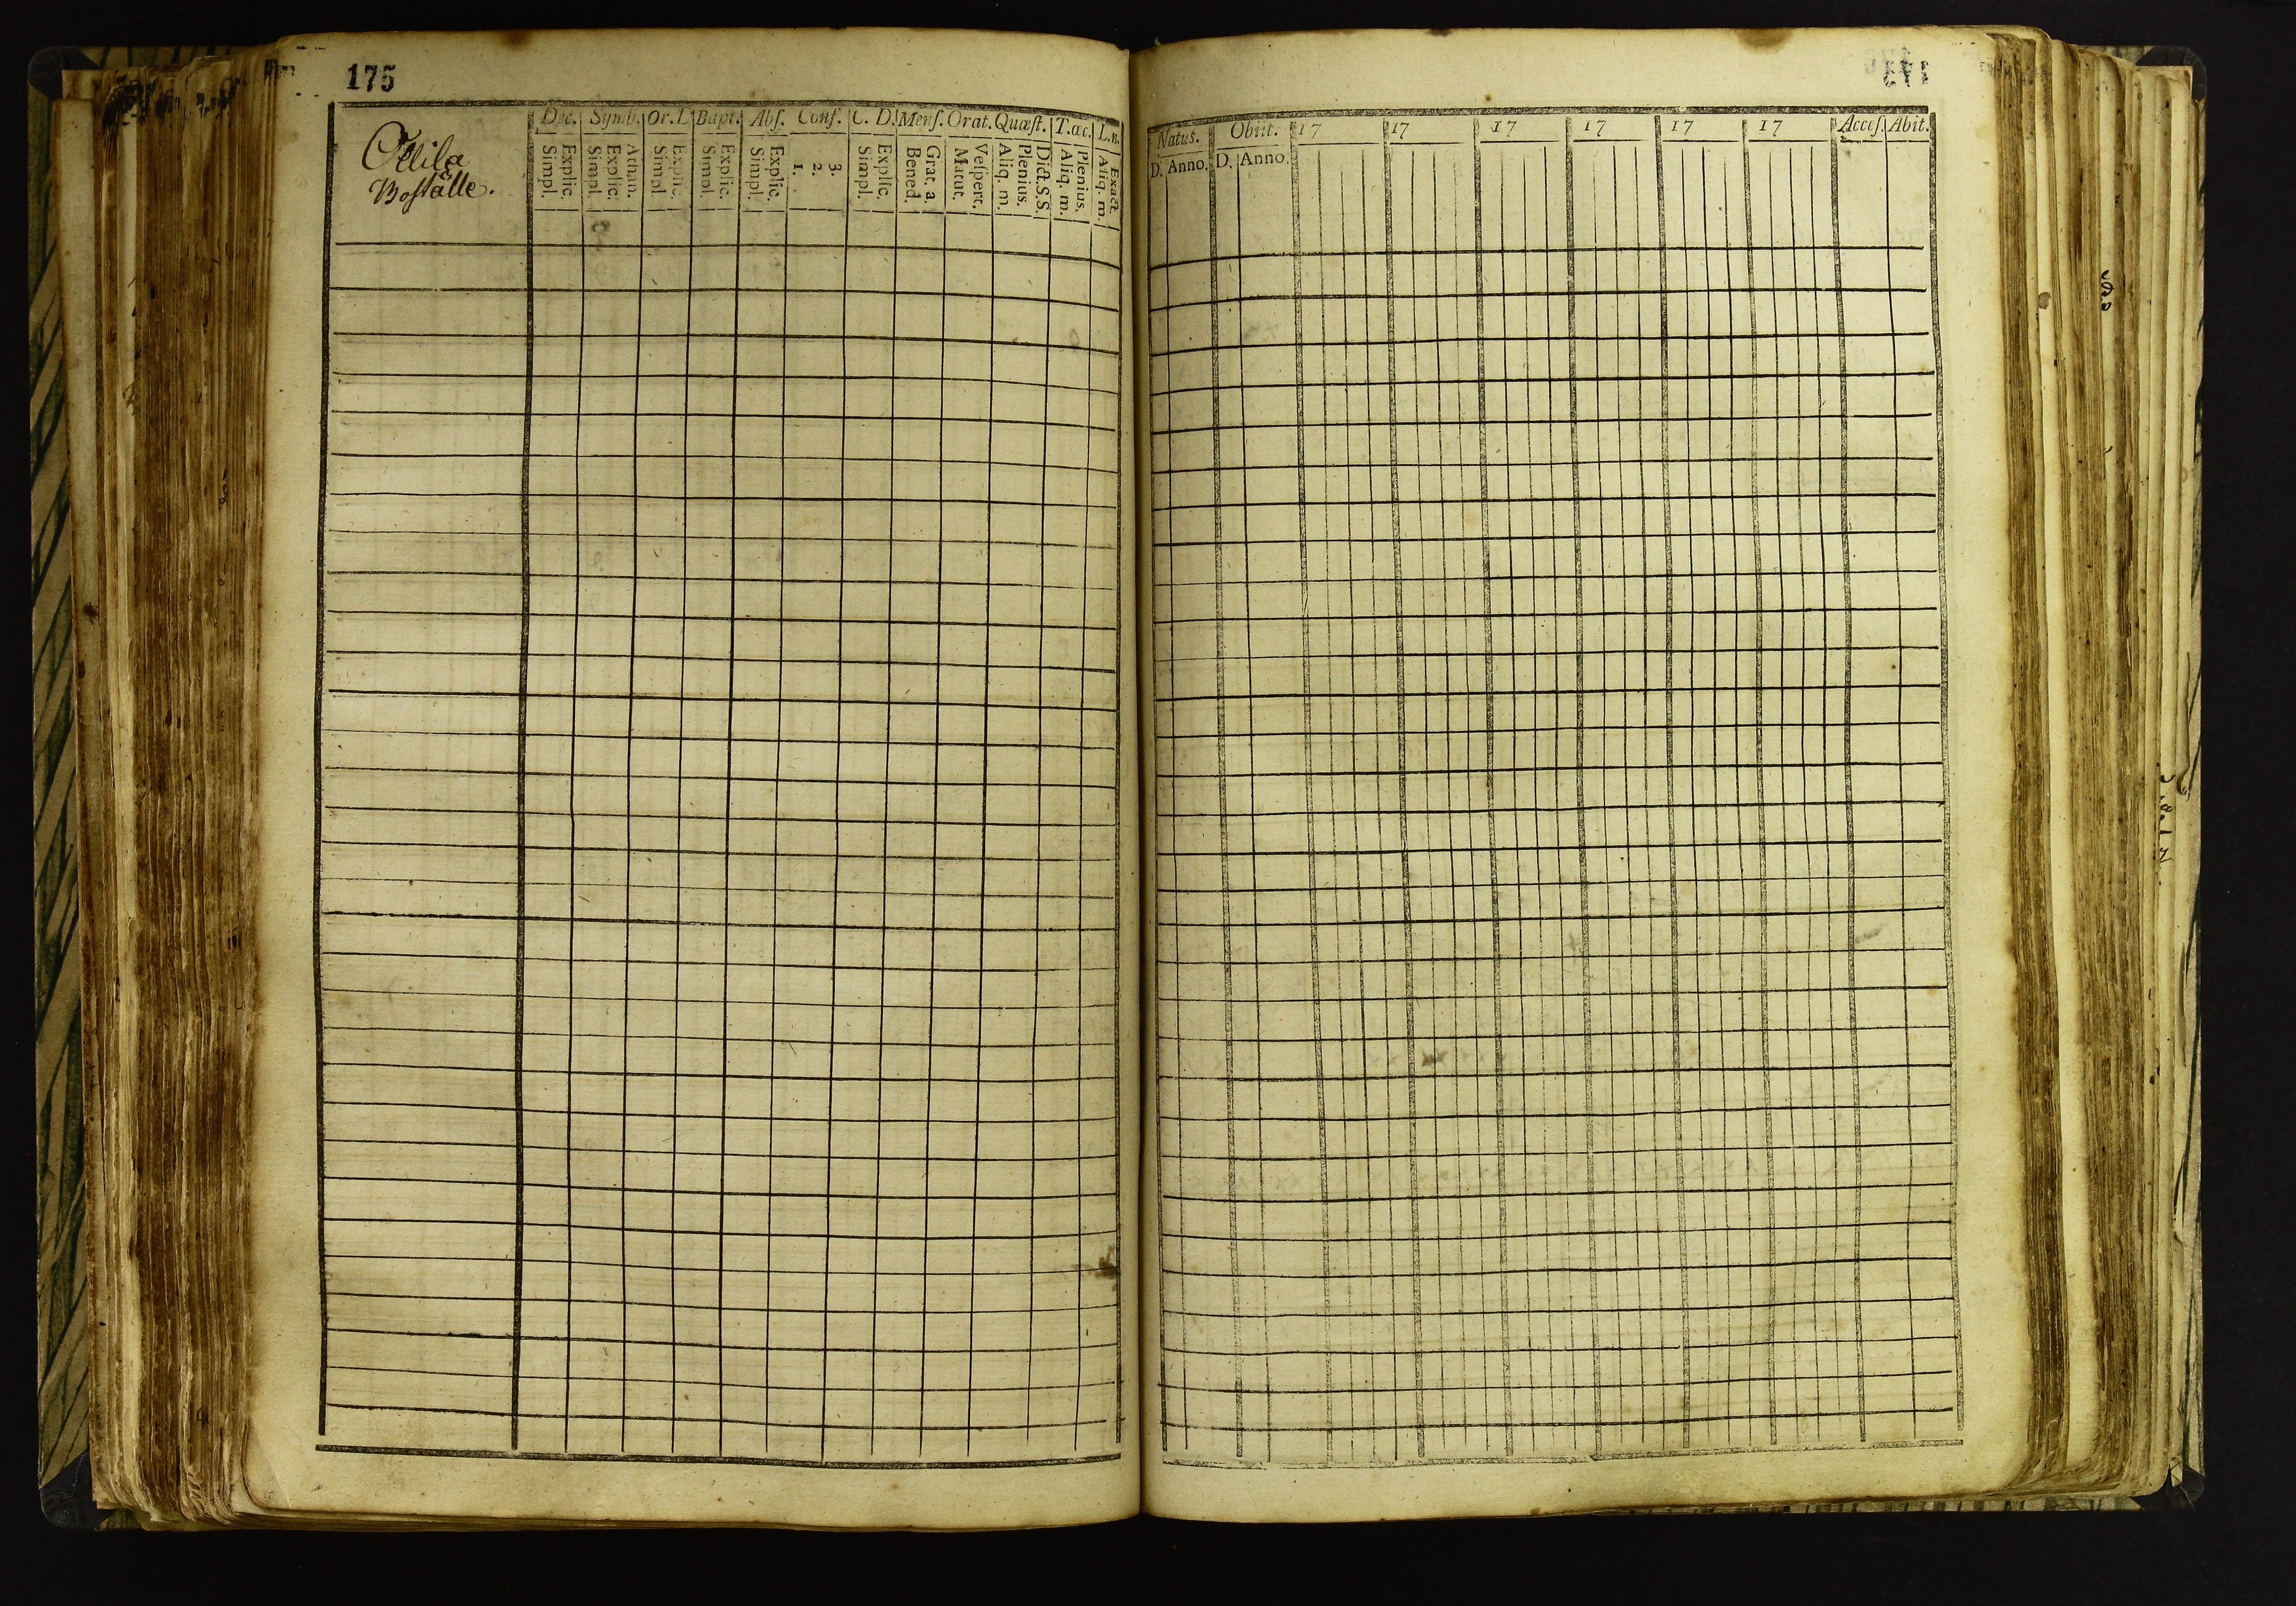 175
Boställe.
Dec. Symb. Or. D Bapt. Abſ. Conf. C. D. Menſ. Orat. Quæſt. T. œc. L. n.
Simpl. Explic. Simpl. Explic. Athan. Simpl. Explic. Simpl. Explic. Simpl. Explic. 1. 2. 3. Simpl. Explic. Bened. Grat. a. Matut. Veſpert. Aliq. m. Plenius. Dict. S.S. Aliq. m. Plenius. Aliq. m. Exact.
Natus. Obiit. 17 17 17 17 17 17 Acceſ. Abit.
D. Anno. D. Anno.